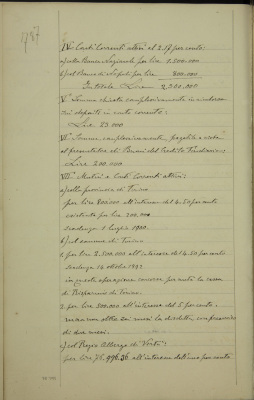 1787
IV° Conti Correnti attivi al 2.17 per cento
a) colla Banca Nazionale per lire 1.500.000
b) col Banco di Napoli per lire 800.000
In totale Lire 2,300,000
V° Somme
sui depositi in conto corrente:
Lire 23 000
VI° Somme complessivamente pagabili a vista
al del Credito Fondiario:
Lire 200.000
VII° Mutui e Conti Correnti attivi:
a) colla provincia di Torino
per lire 800.000 all'interesse del 4.50 per cento
per lire 200,000
Scadenza 1 luglio 1900.
b) col comune di Torino
1. per lire 2.500.000 all'interesse del 4.50 per cento
Scadenza 14 ottobre 1897
in questa operazione concorre per metà la cassa
di Risparmio di Torino.
2. per lire 500.000 all'interesse del 5 per cento.
ma non oltre sei mesi la disdetta, con preavviso
di due mesi.
c) col Regio Albergo di Virtù:
per lire 75,996.36 all'interesse dell'uno per cento